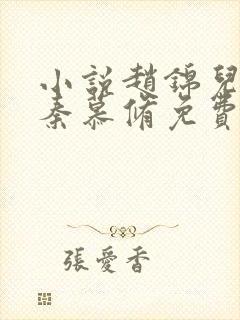 小說趙錦兒
秦慕脩免費
張愛香